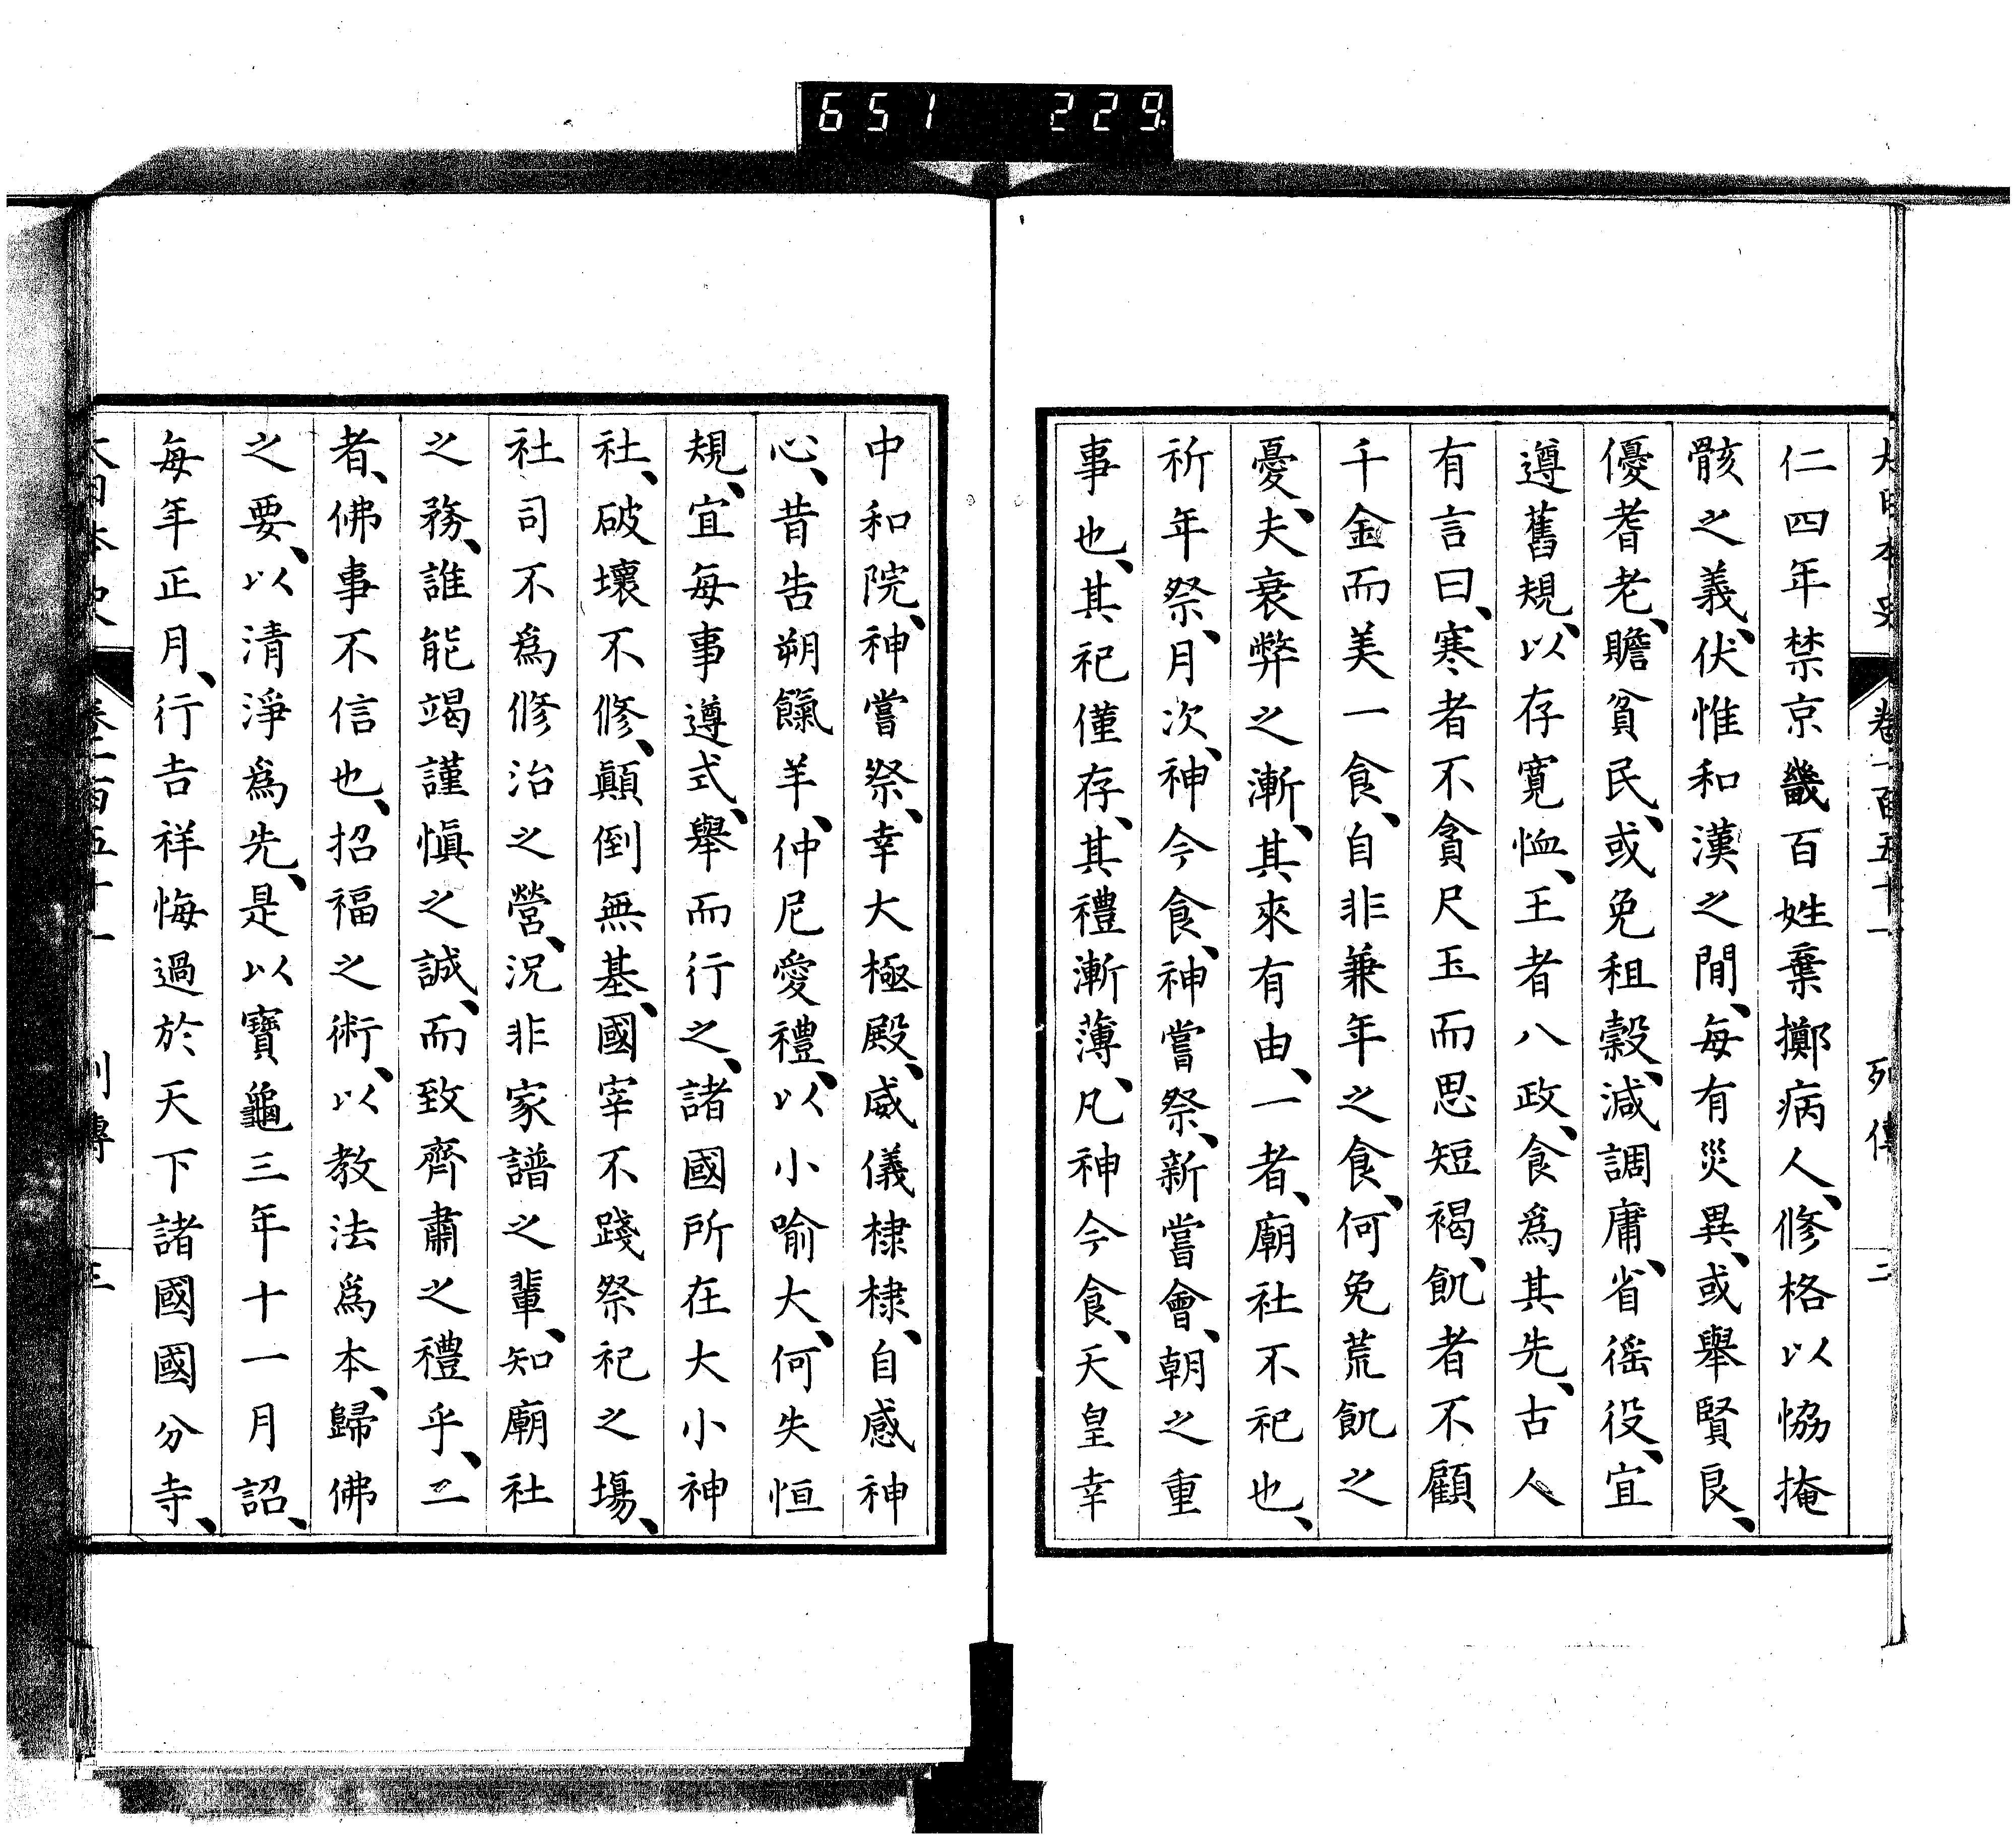 651 229
大日本史 卷一百五十一 列傳 二
仁四年禁京畿百姓棄擲病人、修格以恊掩
骸之義、伏惟和漢之間、每有災異、或舉賢良、
優耆老、贍貧民、或免租穀、減調庸、省徭役、宜
遵舊規、以存寬恤、王者八政、食爲其先、古人
有言曰、寒者不貪尺玉而思短褐、飢者不顧
千金而美一食、自非兼年之食、何免荒飢之
憂、夫衰弊之漸、其來有由、一者、廟社不祀也、
祈年祭、月次、神今食、神嘗祭、新嘗會、朝之重
事也、其祀僅存、其禮漸薄、凡神今食、天皇幸
中和院、神嘗祭、幸大極殿、威儀棣棣、自感神
心、昔告朔餼羊、仲尼愛禮、以小喻大、何失恒
規、宜每事遵式、舉而行之、諸國所在大小神
社、破壞不修、顛倒無基、國宰不踐祭祀之場、
社司不爲修治之營、況非家譜之輩、知廟社
之務、誰能竭謹愼之誠、而致齊肅之禮乎、二
者、佛事不信也、招福之術、以教法爲本、歸佛
之要、以清淨爲先、是以寶龜三年十一月詔、
每年正月、行吉祥悔過於天下諸國國分寺、
大日本史 卷一百五十一 列傳 三